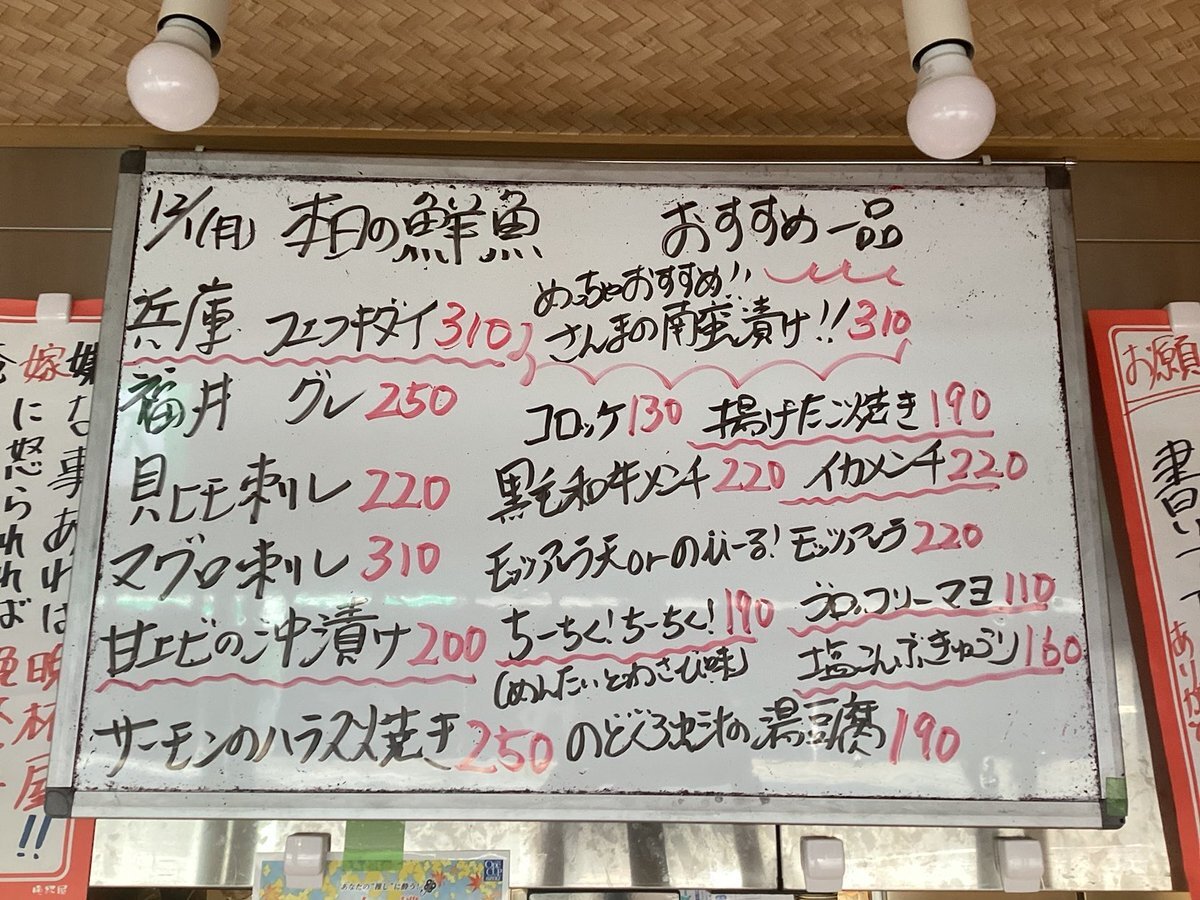 12/1(月) 本日の鮮魚
兵庫 フエフキダイ 310
福井 グレ 250
貝ヒモ刺し 220
マグロ刺し 310
甘エビの沖漬け 200
サーモンのハラス焼き 250
おすすめ一品
めっちゃおすすめ!!
さんまの南蛮漬け!! 310
コロッケ 130 揚げたこ焼き 190
黒毛和牛メンチ 220 イカメンチ 220
モッツァレラ天orのびーる!モッツァレラ 220
ちーちく!ちーちく! 190 ブロッコリーマヨ 110
(めんたいとわさび味) 塩こんぶきゅうり 160
のどぐろ出汁の湯豆腐 190
嫌な事あれば晩杯屋!!
嫁に怒られれば
お願
書い
あなたの"推し"に酔う!
One CUP